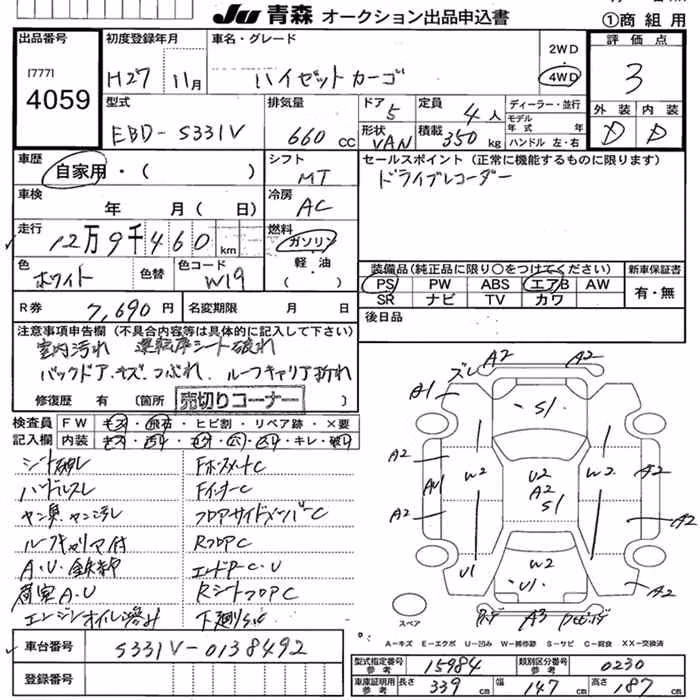 JU 青森 オークション出品申込書
①商組用
出品番号
[777]
4059
初度登録年月
H27 11月
車名・グレード
ハイゼットカーゴ
2WD
4WD
評価点
3
型式
EBD-S331V
排気量
660 CC
ドア 5
定員 4人
ディーラー・並行
モデル年式 年
形状 VAN
積載 350 kg
ハンドル 左・右
外装 内装
D D
車歴
自家用・( )
シフト
MT
セールスポイント(正常に機能するものに限ります)
ドライブレコーダー
車検
年 月( 日)
冷房
AC
走行
12万9千460 km
燃料
ガソリン
軽油
( )
色
ホワイト
色替
色コード
W19
装備品(純正品に限り○をつけてください)
新車保証書
PS PW ABS エアB AW
有・無
SR ナビ TV カワ
R券 7,690円
名変期限 月 日
後日品
注意事項申告欄(不具合内容等は具体的に記入して下さい)
室内汚れ 運転席シート破れ
バックドア、キズ、つぶれ、ルーフキャリア折れ
修復歴 有 (箇所
売切りコーナー
検査員記入欄
FW キズ・飛石・ヒビ割・リペア跡・×要
内装 キズ・汚れ・コゲ・穴・スレ・キレ・破れ
シート破レ
ハンドルスレ
ルーフキャリア付
A・U・
荷室A・U
エンジンオイル滲み
FホースメントC
FインナーC
フロアサイドメンバーC
RフロアC
エンドP・C・U
RシートフロアC
下廻りS、C
ズレ A2 A2
A1
S1
A2 W2 U2 W2 A2
AU1 A2
A2 S1 A2
U1 W2 A2
U1
A3
スペア
A-キズ E-エクボ U-凹み W-補修跡 S-サビ C-腐食 XX-交換済
車台番号
S331V-0138492
登録番号
型式指定番号 参考 15984
類別区分番号 参考 0230
車庫証明用 参考 長さ 339 cm 幅 147 cm 高さ 187 cm